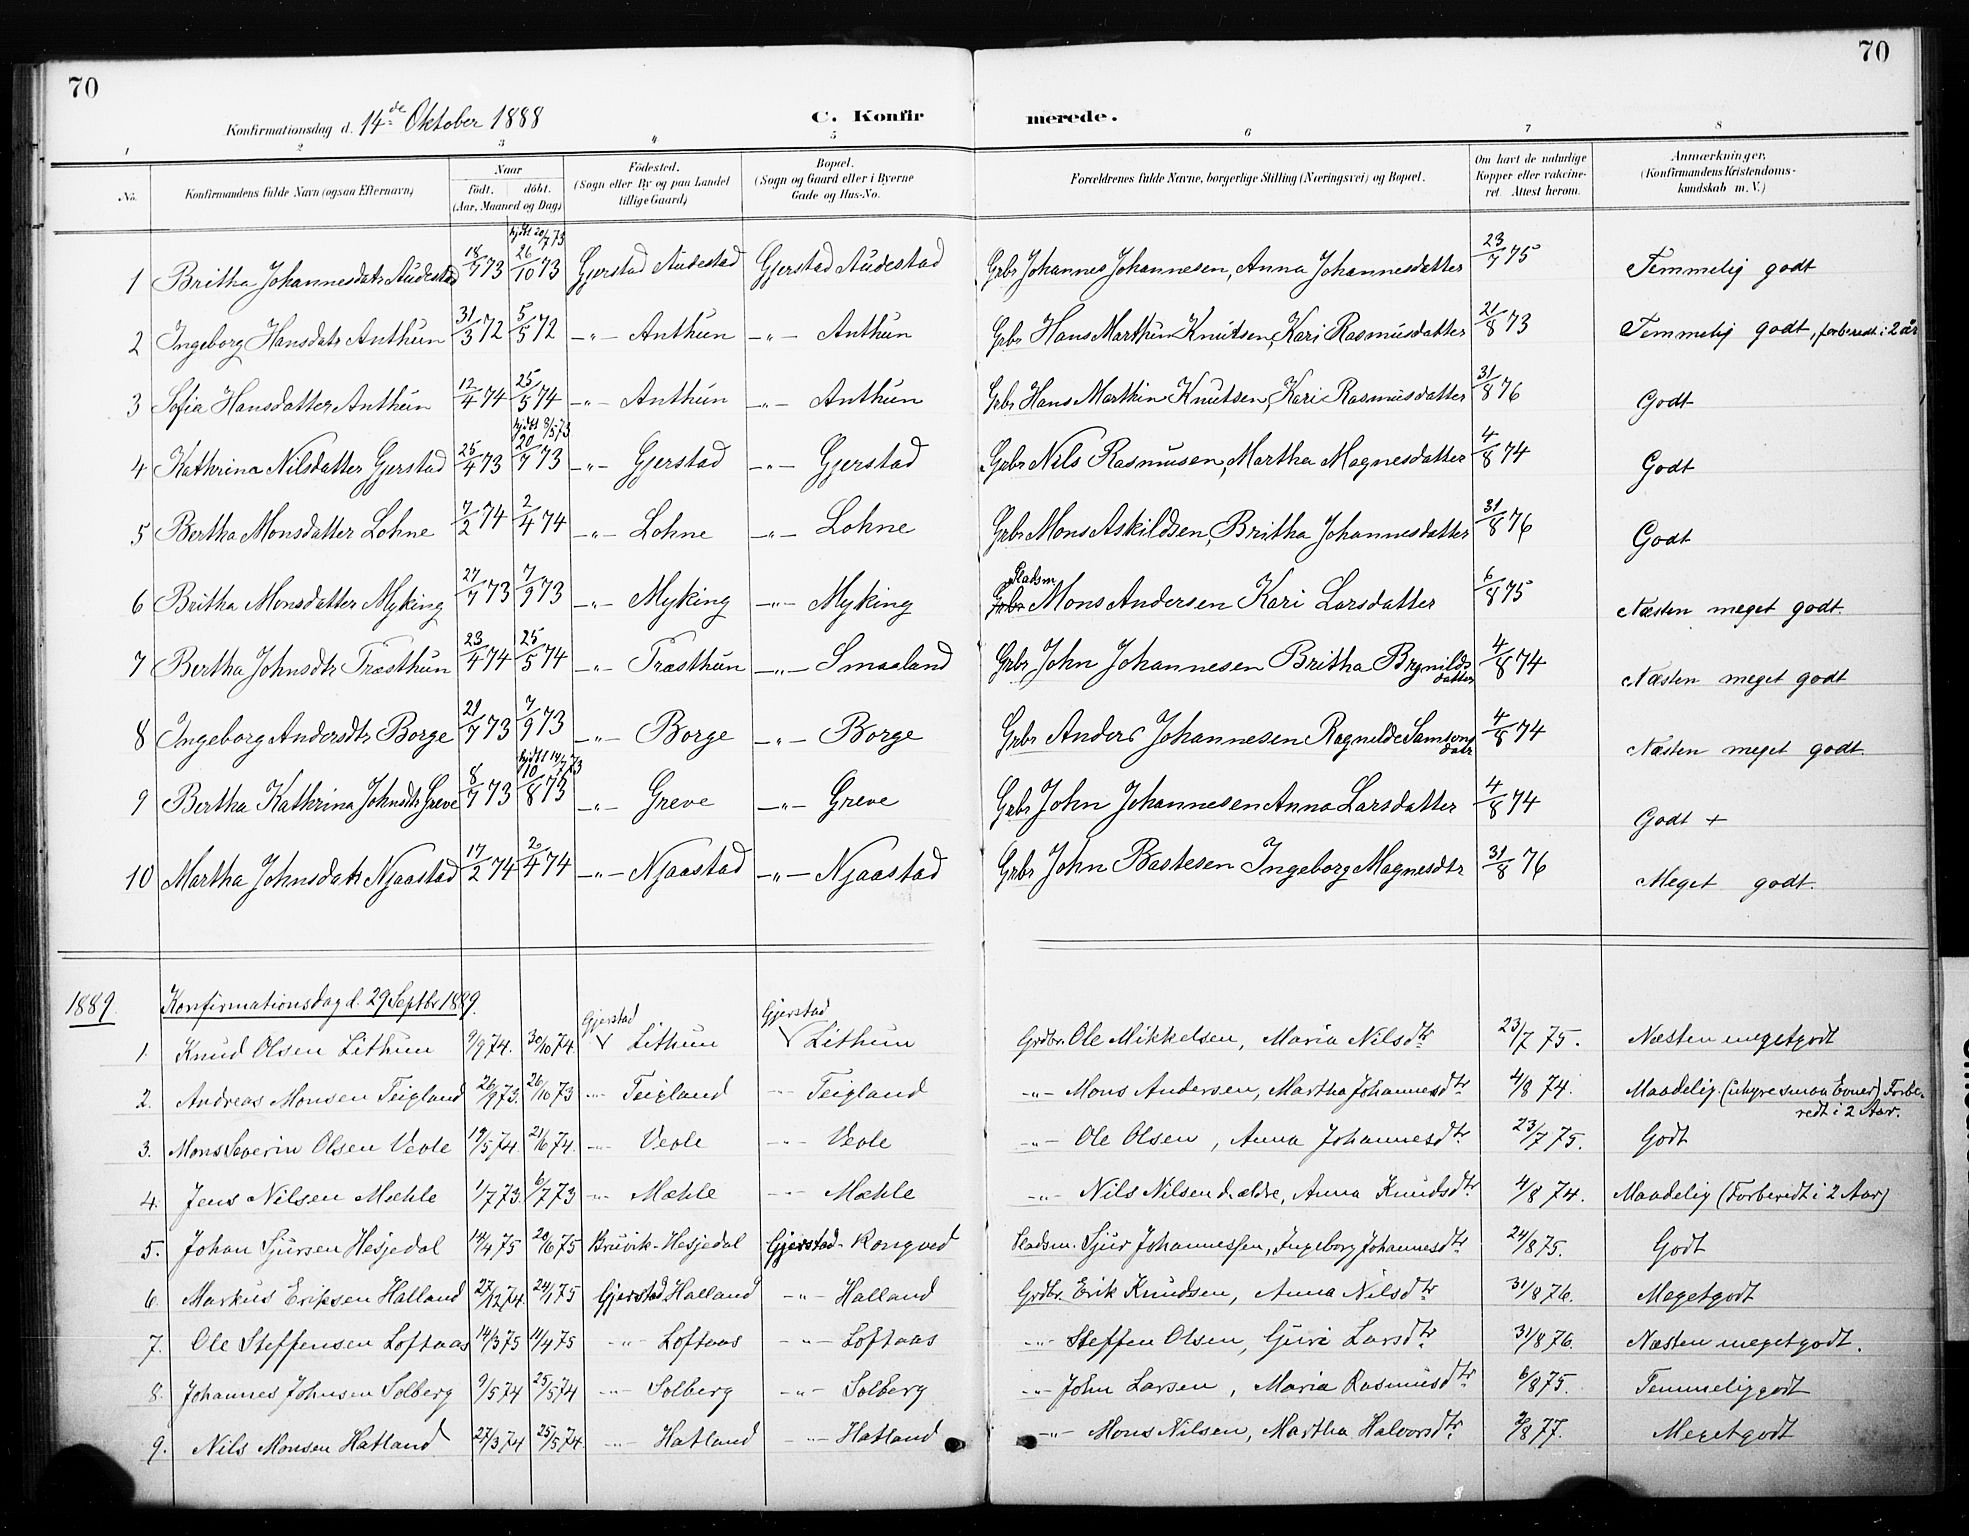 70
70
Konfirmationsdag d. 14de Oktober 1888
C. Konfirmerede.
1 2 3 4 5 6 7 8
No.
Konfirmandens fulde Navn (ogsaa Efternavn)
Naar
født. døbt.
(Aar, Maaned og Dag)
Födested.
(Sogn eller By og paa Landet
tillige Gaard)
Bopæl.
(Sogn og Gaard eller i Byerne
Gade og Hus-No.
Forældrenes fulde Navne, borgerlige Stilling (Næringsvei) og Bopæl.
Om havt de naturlige
Kopper eller vakcine-
ret. Attest herom.
Anmærkninger,
(Konfirmandens Kristendoms-
kundskab m. V.)
hjdt 20/7 73
1 Britha Johannesdatr Audestad 18/7 73 26/10 73 Gjerstad Audestad Gjerstad Audestad Grbr Johannes Johannesen, Anna Johannesdatter 23/7 75 Temmelig godt
2 Ingeborg Hansdatr Anthun 31/3 72 5/5 72 -"- Anthun -"- Anthun Grbr Hans Marthin Knutsen, Kari Rasmusdatter 21/8 73 Temmelig godt, forberedt i 2 år
3 Sofia Hansdatter Anthun 12/4 74 25/5 74 -"- Anthun -"- Anthun Grbr Hans Marthin Knutsen, Kari Rasmusdatter 31/8 76 Godt
hjdt 8/5 73
4 Kathrina Nilsdatter Gjerstad 25/4 73 20/7 73 -"- Gjerstad -"- Gjerstad Grbr Nils Rasmusen, Martha Magnesdatter 4/8 74 Godt
5 Bertha Monsdatter Lohne 7/2 74 2/4 74 -"- Lohne -"- Lohne Grbr Mons Askildsen, Britha Johannesdatter 31/8 76 Godt
Pladsm
6 Britha Monsdatter Myking 27/7 73 7/9 73 -"- Myking -"- Myking Grbr Mons Andersen Kari Larsdatter 6/8 75 Næsten meget godt.
7 Bertha Johnsdtr Træsthun 23/4 74 25/5 74 -"- Træsthun -"- Smaaland Grbr John Johannesen Britha Brynilds
datter 4/8 74 Næsten meget godt
8 Ingeborg Andersdtr Borge 21/7 73 7/9 73 -"- Borge -"- Borge Grbr Anders Johannesen Ragnilde Samsons
datr 4/8 74 Næsten meget godt
hjdt 14/7 73
9 Bertha Kathrina Johnsdtr Greve 8/7 73 10/8 73 -"- Greve -"- Greve Grbr John Johannesen Anna Larsdatter 4/8 74 Godt +
10 Martha Johnsdatr Njaastad 17/2 74 2/4 74 -"- Njaastad -"- Njaastad Grbr John Bastesen Ingeborg Magnesdtr 31/8 76 Meget godt.
1889. Konfirmationsdag d. 29 Septbr 1889.
Gjerstad Gjerstad
1. Knud Olsen Lithun 9/9 74. 30/10 74. Lithun Lithun Grdbr. Ole Mikkelsen, Maria Nilsdtr 23/7 75. Næsten megetgodt
2. Andreas Monsen Teigland 26/9 73. 26/10 73 -"- Teigland -"- Teigland -"- Mons Andersen, Martha Johannesdtr 4/8 74. Maadelig. (uhyre smaa Evner) Forbe-
redt i 2 Aar.
3. Mons Severin Olsen Veole 19/5 74 21/6 74. -"- Veole -"- Veole -"- Ole Olsen, Anna Johannesdtr 23/7 75. Godt
4. Jens Nilsen Mæhle 1/7 73. 6/7 73 -"- Mæhle -"- Mæhle -"- Nils Nilsen d. ældre, Anna Knudsdtr 4/8 74. Maadelig (Forberedt i 2 Aar)
5. Johan Sjursen Hesjedal 14/4 75 20/6 75 Bruvik-Hesjedal Gjerstad-Rongved Pladsm. Sjur Johannessen, Ingeborg Johannesdtr 24/8 75. Godt
6. Markus Eriksen Halland 27/12 74. 24/1 75 Gjerstad Halland -"- Halland Grdbr. Erik Knudsen, Anna Nilsdtr 31/8 76. Megetgodt
7. Ole Steffensen Loftaas 14/3 75 11/4 75 -"- Loftaas -"- Loftaas -"- Steffen Olsen, Guri Larsdtr 31/8 76. Næsten megetgodt.
8. Johannes Johnsen Solberg 9/5 74 25/5 74 -"- Solberg -"- Solberg -"- John Larsen, Maria Rasmusdtr 6/8 75. Temmeliggodt
9. Nils Monsen Hatland 27/3 74 25/5 74. -"- Hatland -"- Hatland -"- Mons Nilsen, Martha Halvorsdtr. 2/8 77. Megetgodt